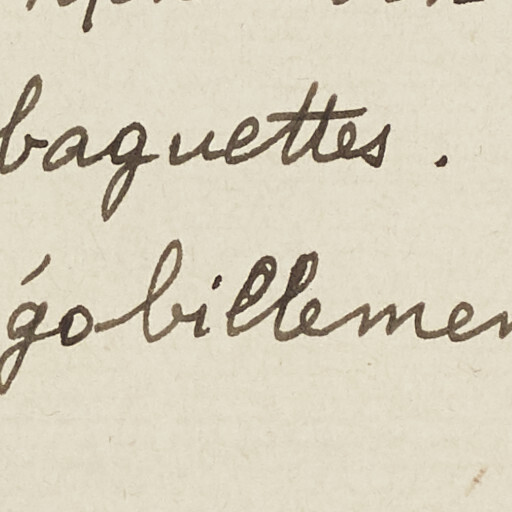 baguettes.
égobillemen